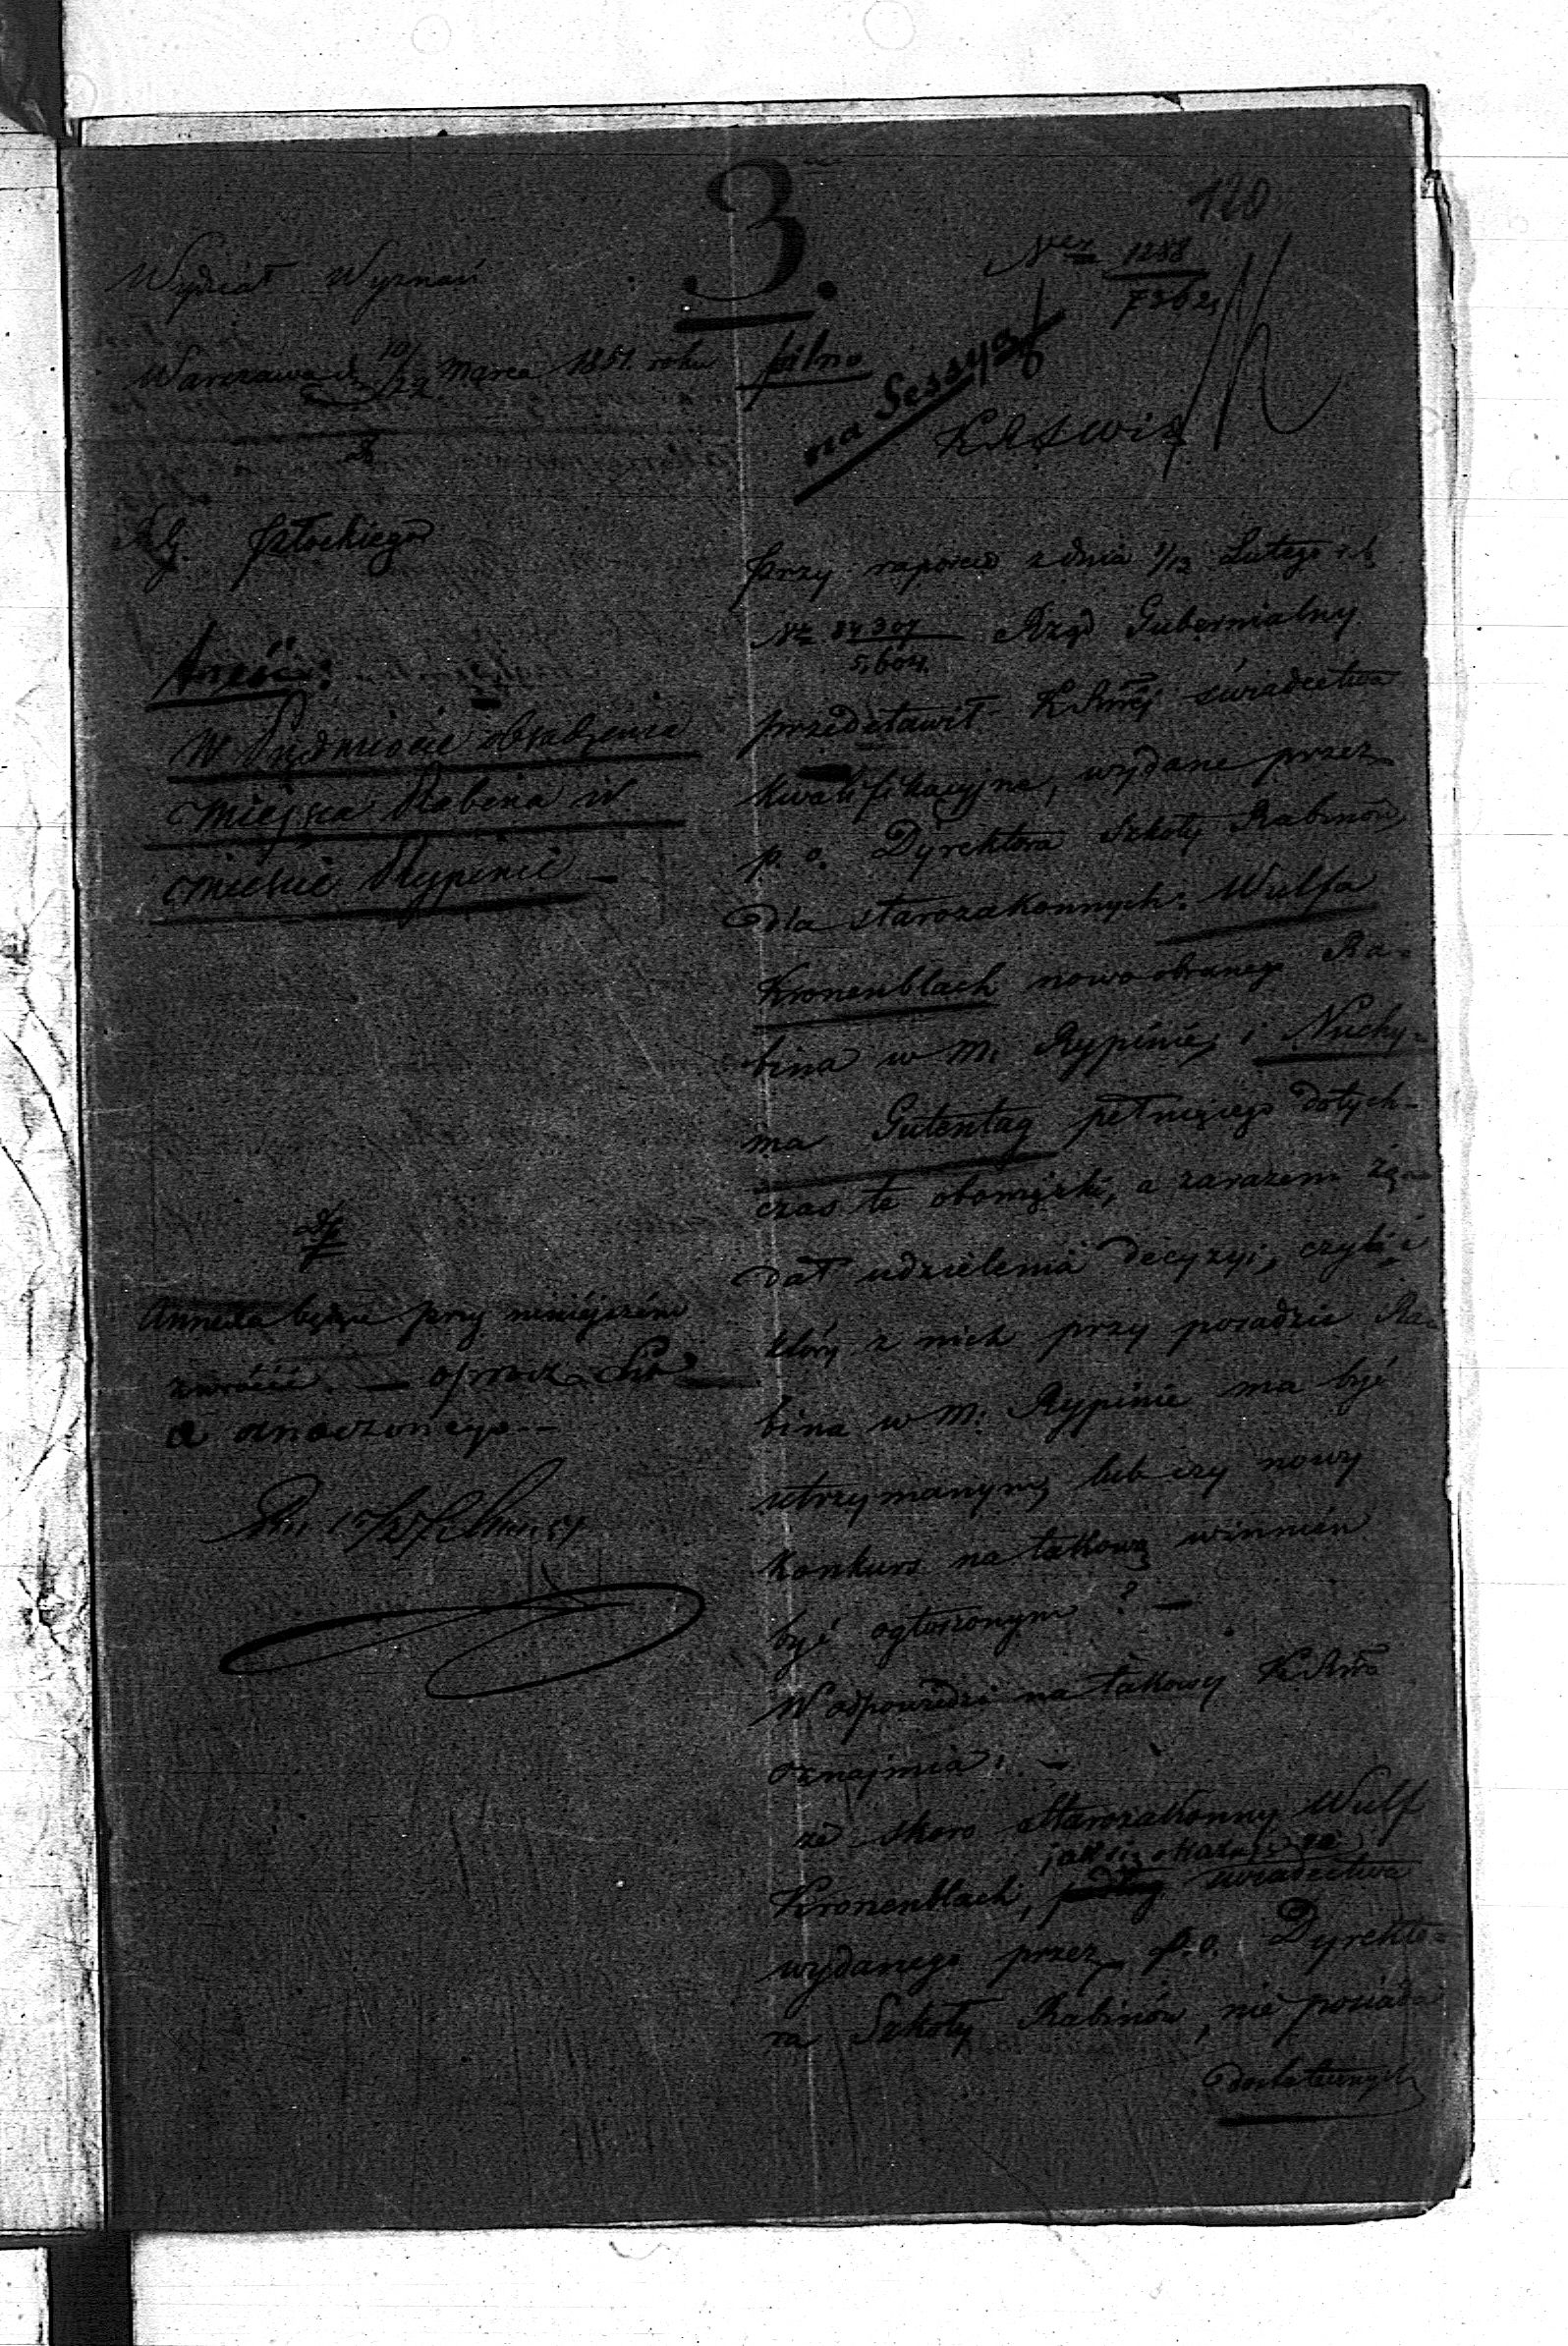 3.
120
Wydział Wyznań
Nr 1288
7362
Warszawa d. 10/22 Marca 1851. roku
pilno
na Sessyą
Płockiego
Przy raporcie z dnia 1/13 Lutego r.b.
Nr 84307 Rząd Gubernialny
5,604.
przedstawił świadectwa
kwalifikacyjne, wydane przez
p. o. Dyrektora Szkoły Rabinów
dla starozakonnych: Wulfa
Kronenblach nowo obranego Ra-
bina w m. Rypinie, i Nuchy-
ma Gutentag pełniącego dotych-
czas te obowiązki, a zarazem żą-
dał udzielenia decyzyi, czyli i
który z nich przy posadzie Ra-
bina w m: Rypinie ma być
utrzymanym, lub czy nowy
konkurs na takową winnien
być ogłoszonym? —
W odpowiedzi na takowy
oznajmia: —
że skoro Starozakonny Wulf
jak się okazuje ze
Kronenblach, świadectwa
wydanego przez p.o. Dyrekto-
ra Szkoły Rabinów, nie posiada
dostatecznych
Treść:
W Przedmiocie obsadzenia
miejsca Rabina w
mieście Rypinie —
Annexa będące przy niniejszém
zwrócić. — oprócz
a oznaczonego --